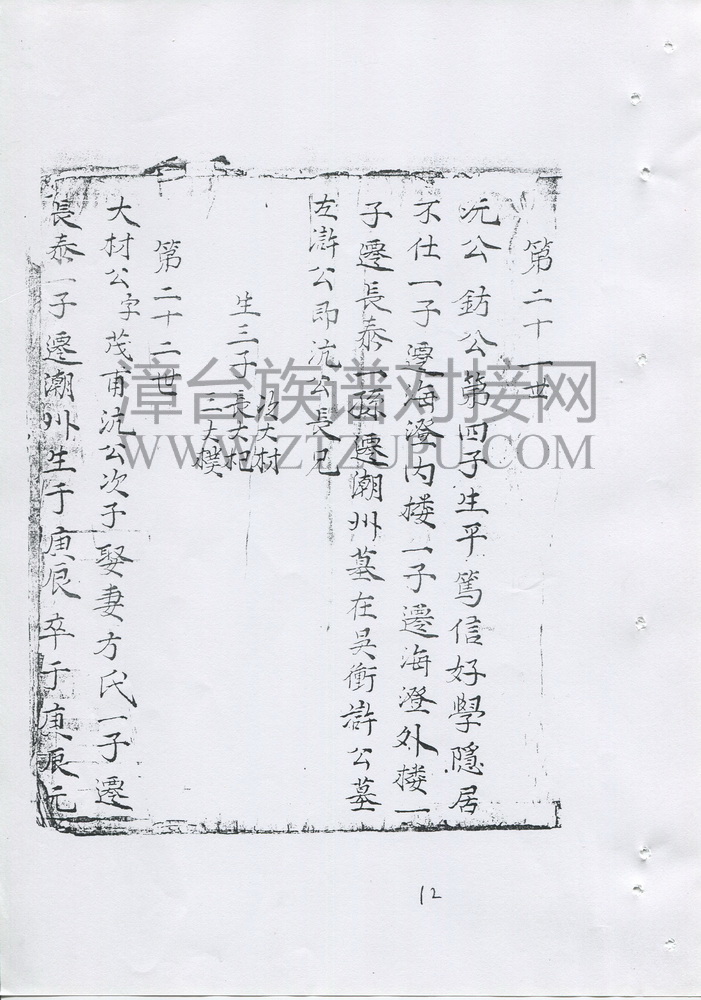 第二十一世
沅公 鈁公第四子生平篤信好學隱居
不仕一子遷海澄内楼一子遷海澄外楼一
子遷長泰一孫遷潮州墓在吳衝滸公墓
左滸公即沆公長兄
生三子 長大杞
次大材
三大樸
第二十二世
大材公字茂甫沆公次子娶妻方氏一子遷
長泰一子遷潮州生于庚辰卒于庚辰元
漳台族谱对接网
WWW.ZTZUPU.COM
12